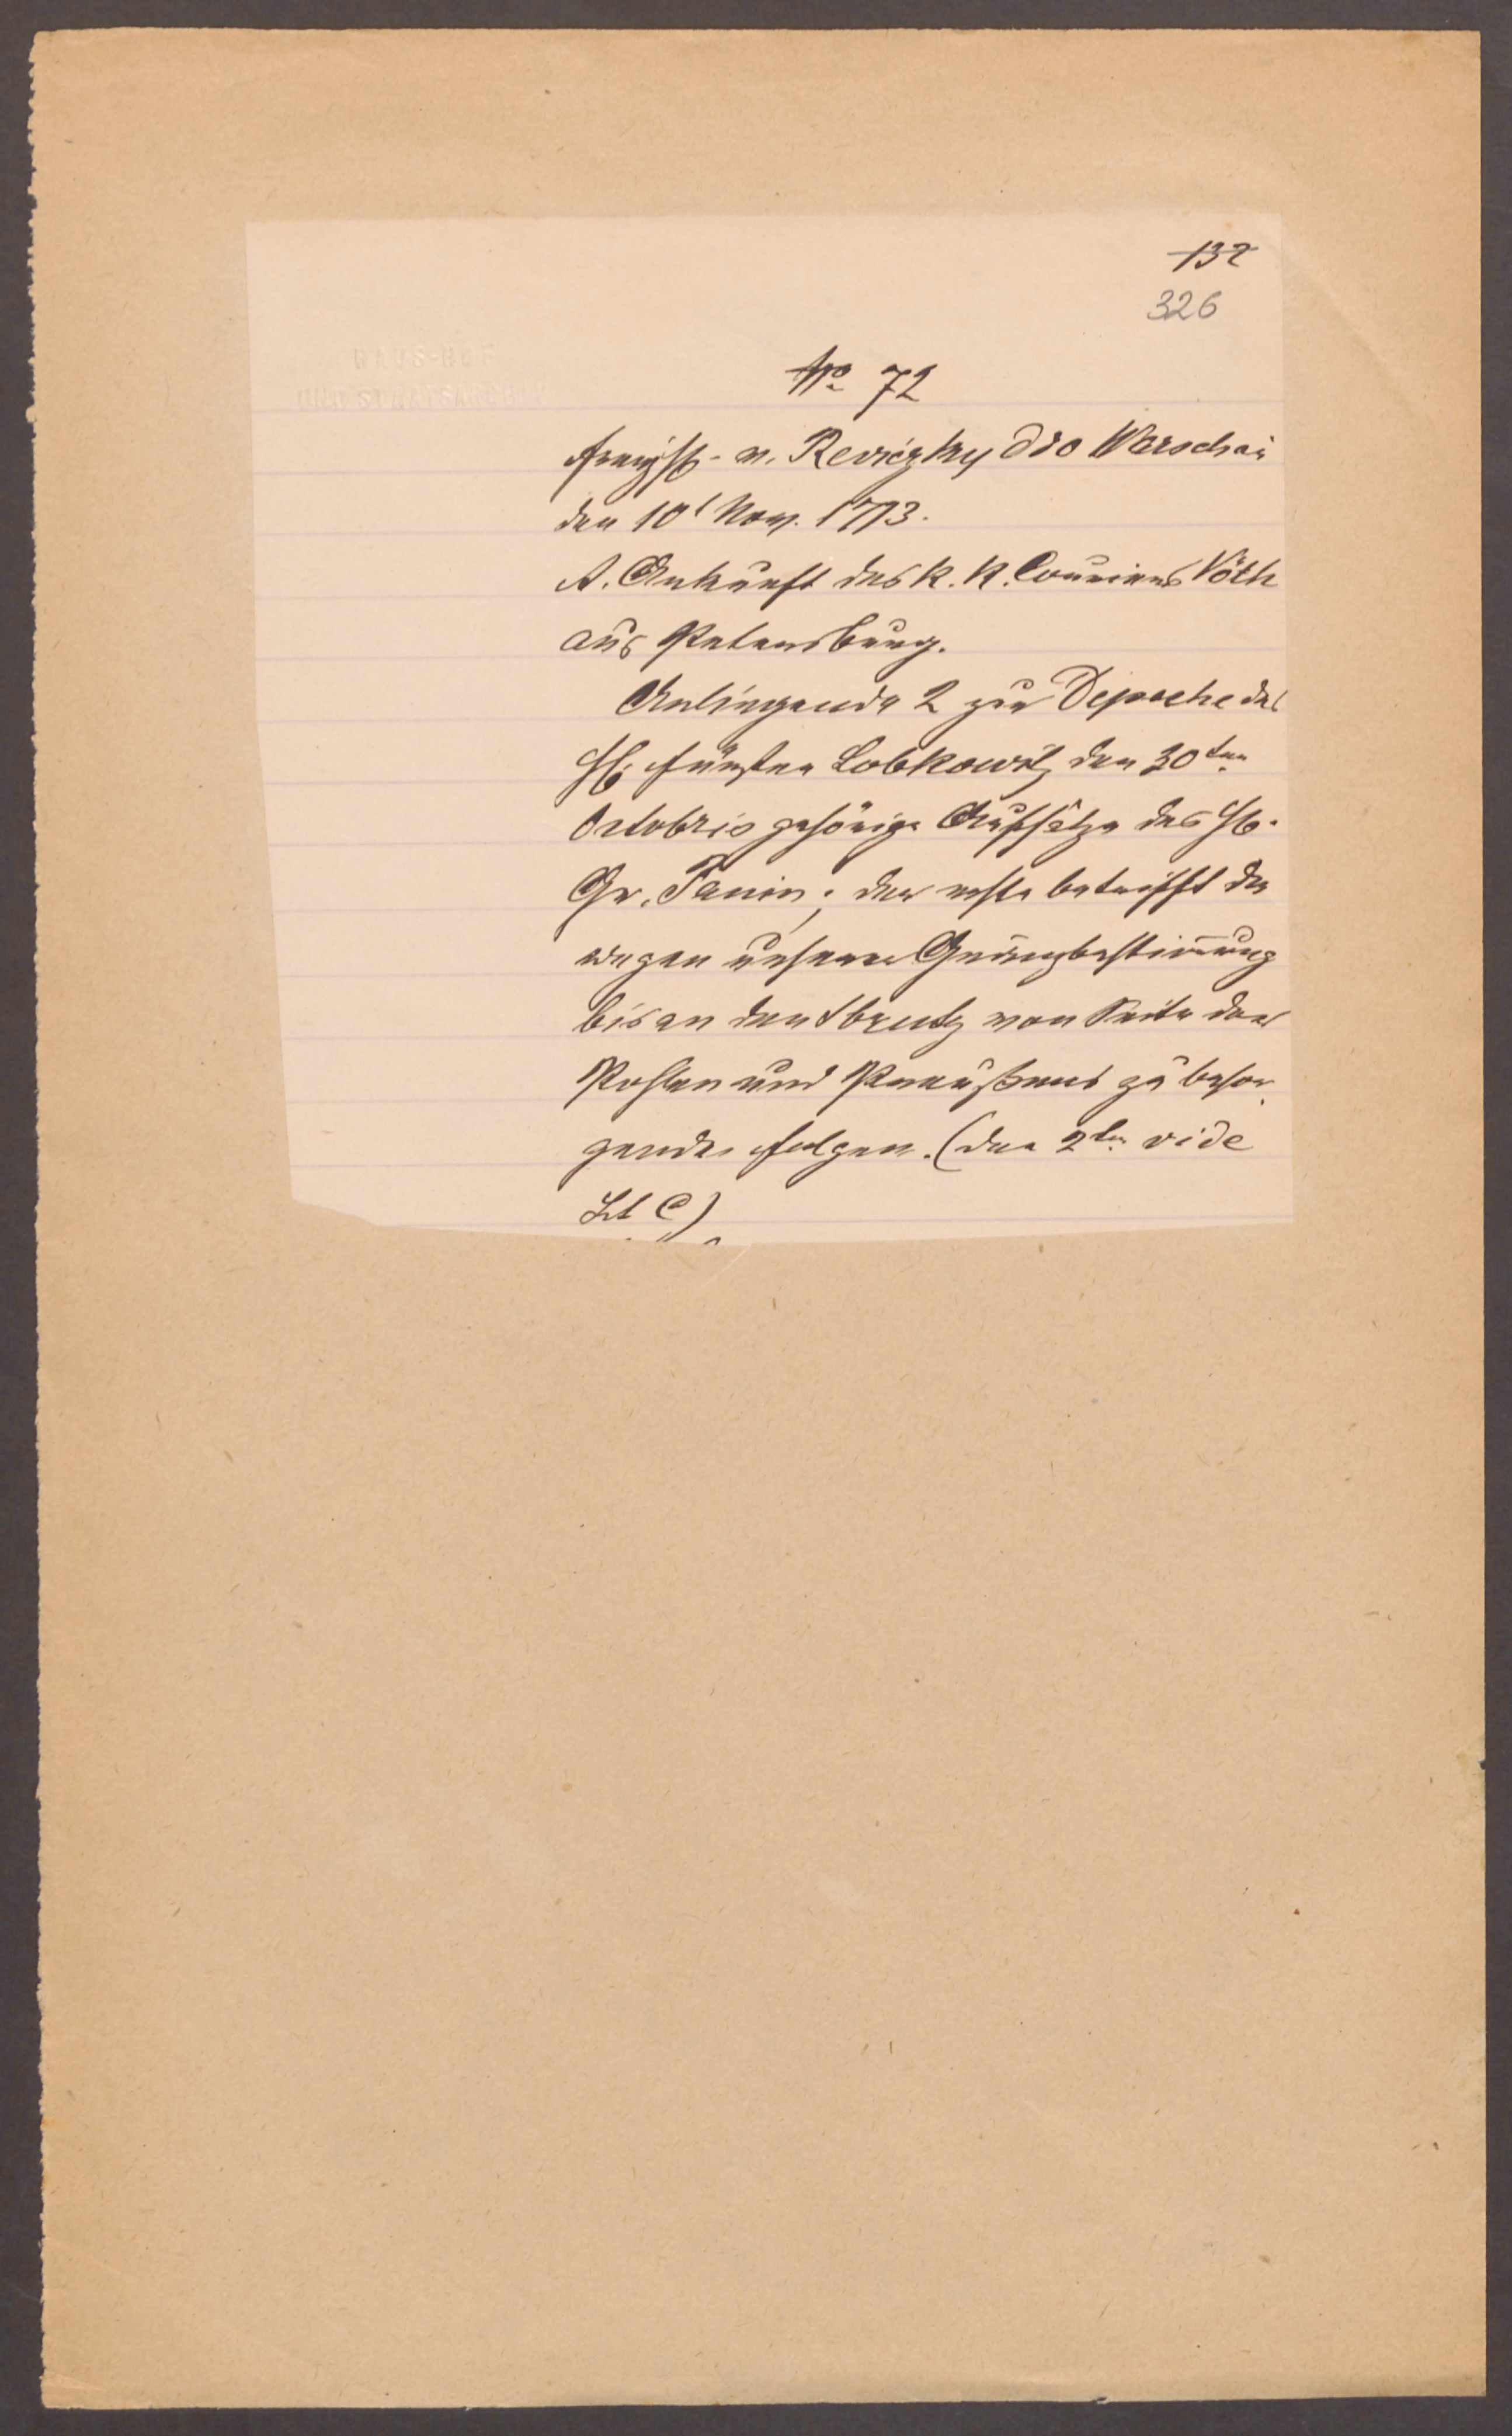 132
326
HAUS-HOF
UND STAATSARCHIV
No 72
Freyh. v. Reviczky ddo Warschau
den 10t Nov. 1773.
A. Ankunft des k. k. Couriers Vöth
aus Petersburg.
Anliegende 2 zur Depeche des
H. Fürsten Lobkowitz den 30ten
Octobris gehörige Aufsätze des H.
Gr. Panin; der erste betrifft die
wegen unserer Gränzbestimmung
bis an den Sbrutz von Seite der
Pohlen und Preußens zu besor
gende Folgen. (der 2te vide
Lit C)